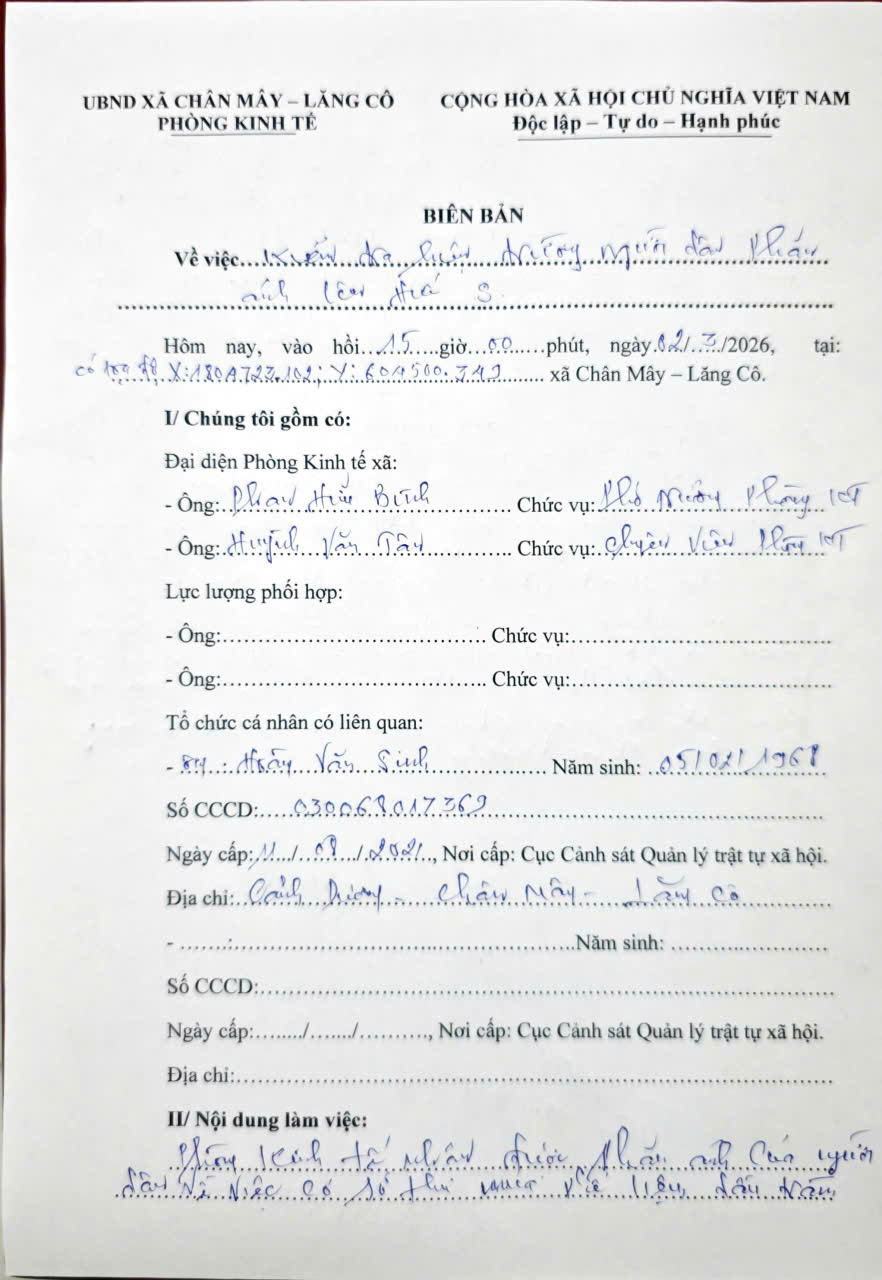 UBND XÃ CHÂN MÂY – LĂNG CÔ
PHÒNG KINH TẾ
CỘNG HÒA XÃ HỘI CHỦ NGHĨA VIỆT NAM
Độc lập – Tự do – Hạnh phúc
BIÊN BẢN
Về việc kiểm tra hiện trường người dân phản
ánh trên Huế S
Hôm nay, vào hồi 15 giờ 00 phút, ngày 02/3/2026, tại:
có tọa độ X:1804723.102; Y:601500.349 xã Chân Mây – Lăng Cô.
I/ Chúng tôi gồm có:
Đại diện Phòng Kinh tế xã:
- Ông: Phan Bình Chức vụ: Phó trưởng Phòng KT
- Ông: Huỳnh Văn Tân Chức vụ: Chuyên viên Phòng KT
Lực lượng phối hợp:
- Ông: Chức vụ:
- Ông: Chức vụ:
Tổ chức cá nhân có liên quan:
- Ông: Văn Sinh Năm sinh: 05/02/1968
Số CCCD: 030068017369
Ngày cấp: 11/08/2021, Nơi cấp: Cục Cảnh sát Quản lý trật tự xã hội.
Địa chỉ: Cảnh Dương - Chân Mây - Lăng Cô
- : Năm sinh:
Số CCCD:
Ngày cấp: / / , Nơi cấp: Cục Cảnh sát Quản lý trật tự xã hội.
Địa chỉ:
II/ Nội dung làm việc:
Phòng Kinh tế nhận được phản ánh của người
dân về việc có số thu mua phế liệu,